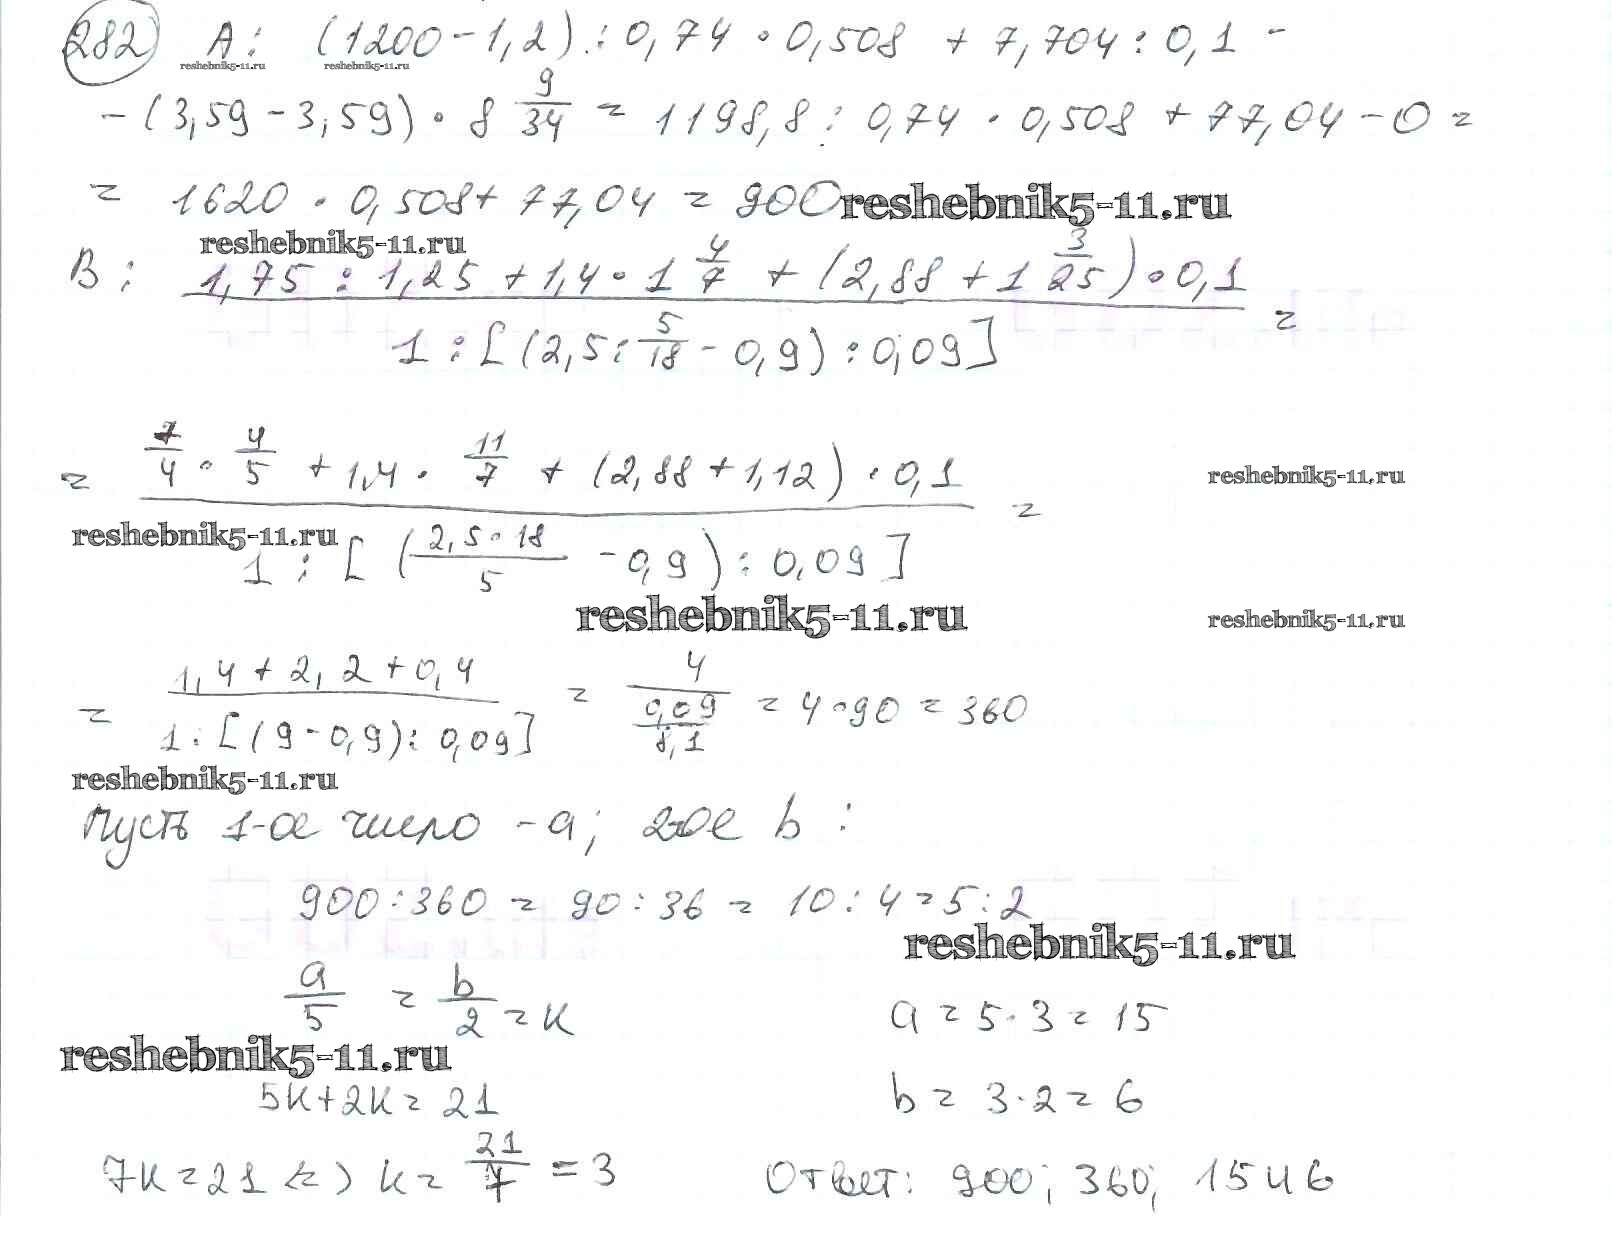 282 A: (1200-1,2):0,74·0,508 + 7,704:0,1 -
reshebnik5-11.ru reshebnik5-11.ru
-(3,59-3,59)·8 9/34 = 1198,8:0,74·0,508+77,04-0=
= 1620·0,508+77,04 = 900
reshebnik5-11.ru
reshebnik5-11.ru
B: (1,75:1,25+1,4·1 4/7+(2,88+1 3/25)·0,1)/(1:[(2,5:5/18-0,9):0,09]) =
= (7/4·4/5+1,4·11/7+(2,88+1,12)·0,1)/(1:[(2,5·18/5-0,9):0,09]) =
reshebnik5-11.ru
reshebnik5-11.ru
reshebnik5-11.ru
reshebnik5-11.ru
= (1,4+2,2+0,4)/(1:[(9-0,9):0,09]) = 4/(0,09/8,1) = 4·90 = 360
reshebnik5-11.ru
Пусть 1-ое число - a; 2-ое b:
900:360 = 90:36 = 10:4=5:2
reshebnik5-11.ru
a/5 = b/2 = k
a = 5·3 = 15
reshebnik5-11.ru
5k+2k=21
b = 3·2 = 6
7k=21 <=> k= 21/7 = 3
Ответ: 900; 360; 15 и 6